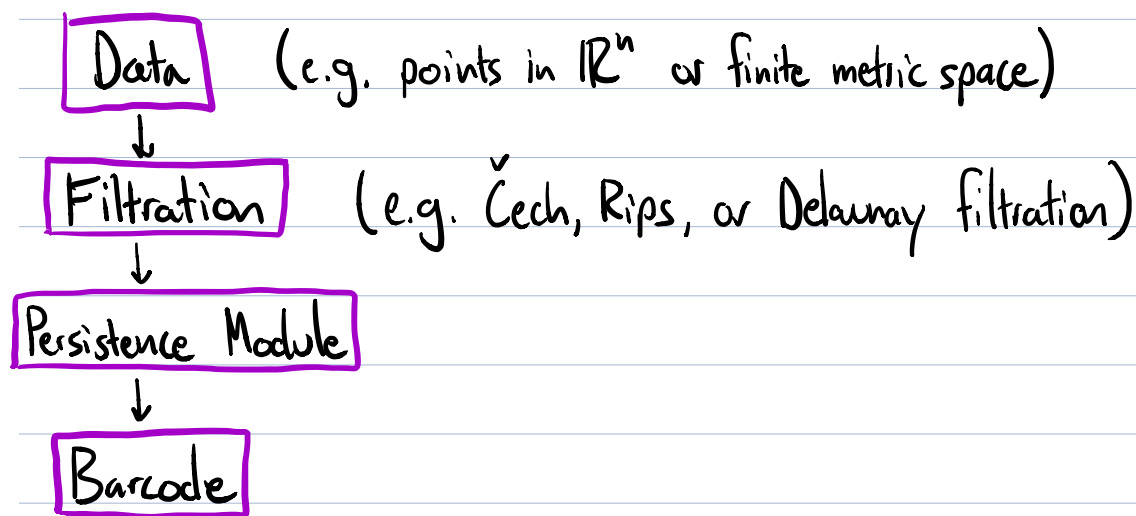 Data (e.g. points in ℝⁿ or finite metric space)
Filtration (e.g. Čech, Rips, or Delaunay filtration)
Persistence Module
Barcode